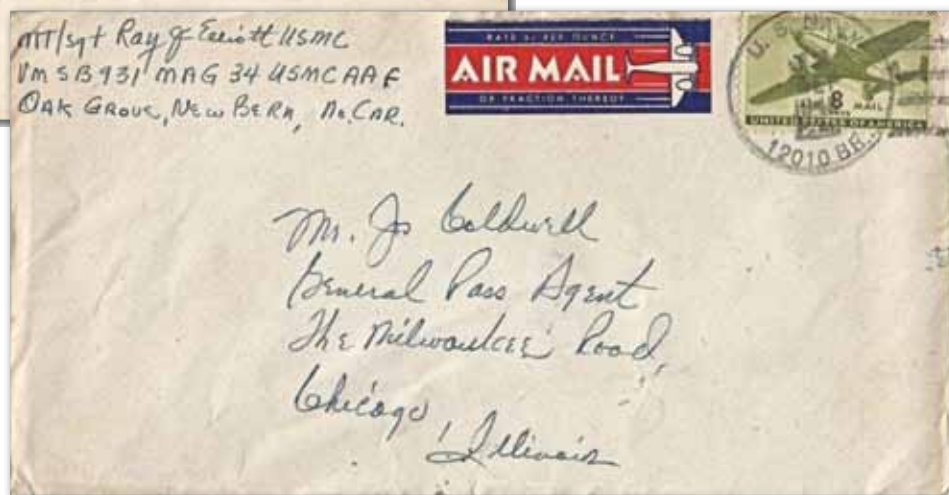 MT/Sgt Ray J Elliott USMC
VMSB 931 MAG 34 USMCAAF
OAK GROVE, NEW BERN, No. CAR.
RATE 8¢ PER OUNCE
AIR MAIL
OR FRACTION THEREOF
U. S. NAVY
8
MAIL
UNITED STATES OF AMERICA
12010 BR.
Mr. Jo Caldwell
General Pass Agent
The Milwaukee Road,
Chicago,
Illinois